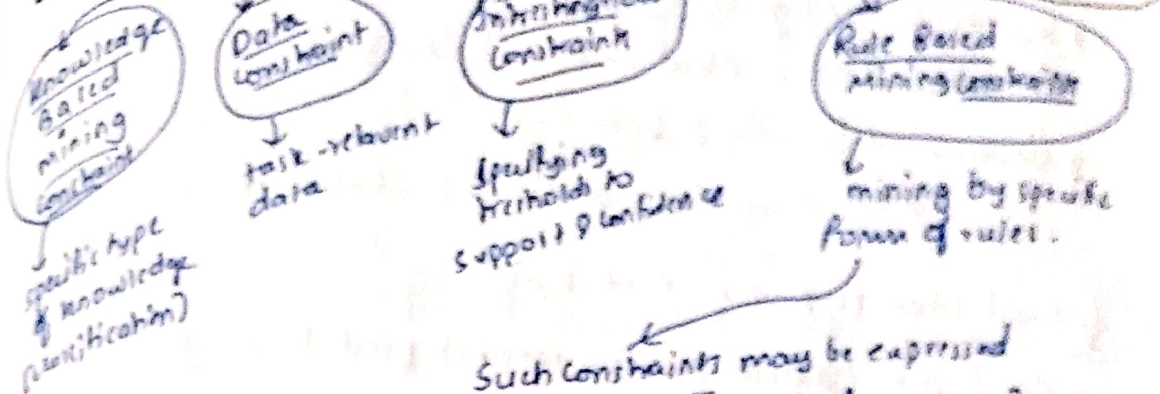 Knowledge
Based
mining
constraint
specific type
of knowledge
Data
constraint
task-relevent
data
constraint
specifying
support & confidence
Rule Based
mining constraint
mining by specific
form of rules.
Such constraints may be expressed